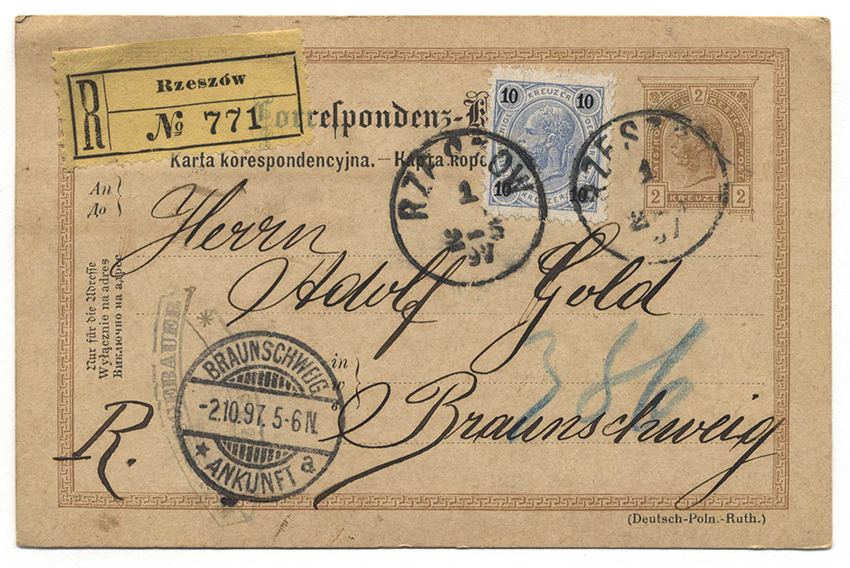 Rzeszów
R № 771
Correspondenz-K
Karta korespondencyjna. — Карта коре
10 10
KREUZER
10 10
KREUZER
2
2 KREUZER 2
RZESZOW
1
97
RZESZ
1
97
An
До
Herrn
Adolf Gold
in
Braunschweig
R.
386
Nur für die Adresse
Wyłącznie na adres
Виключно на адрес
BRAUNSCHWEIG
-2.10.97. 5-6 N.
ANKUNFT a
EBAUER
(Deutsch-Poln.-Ruth.)